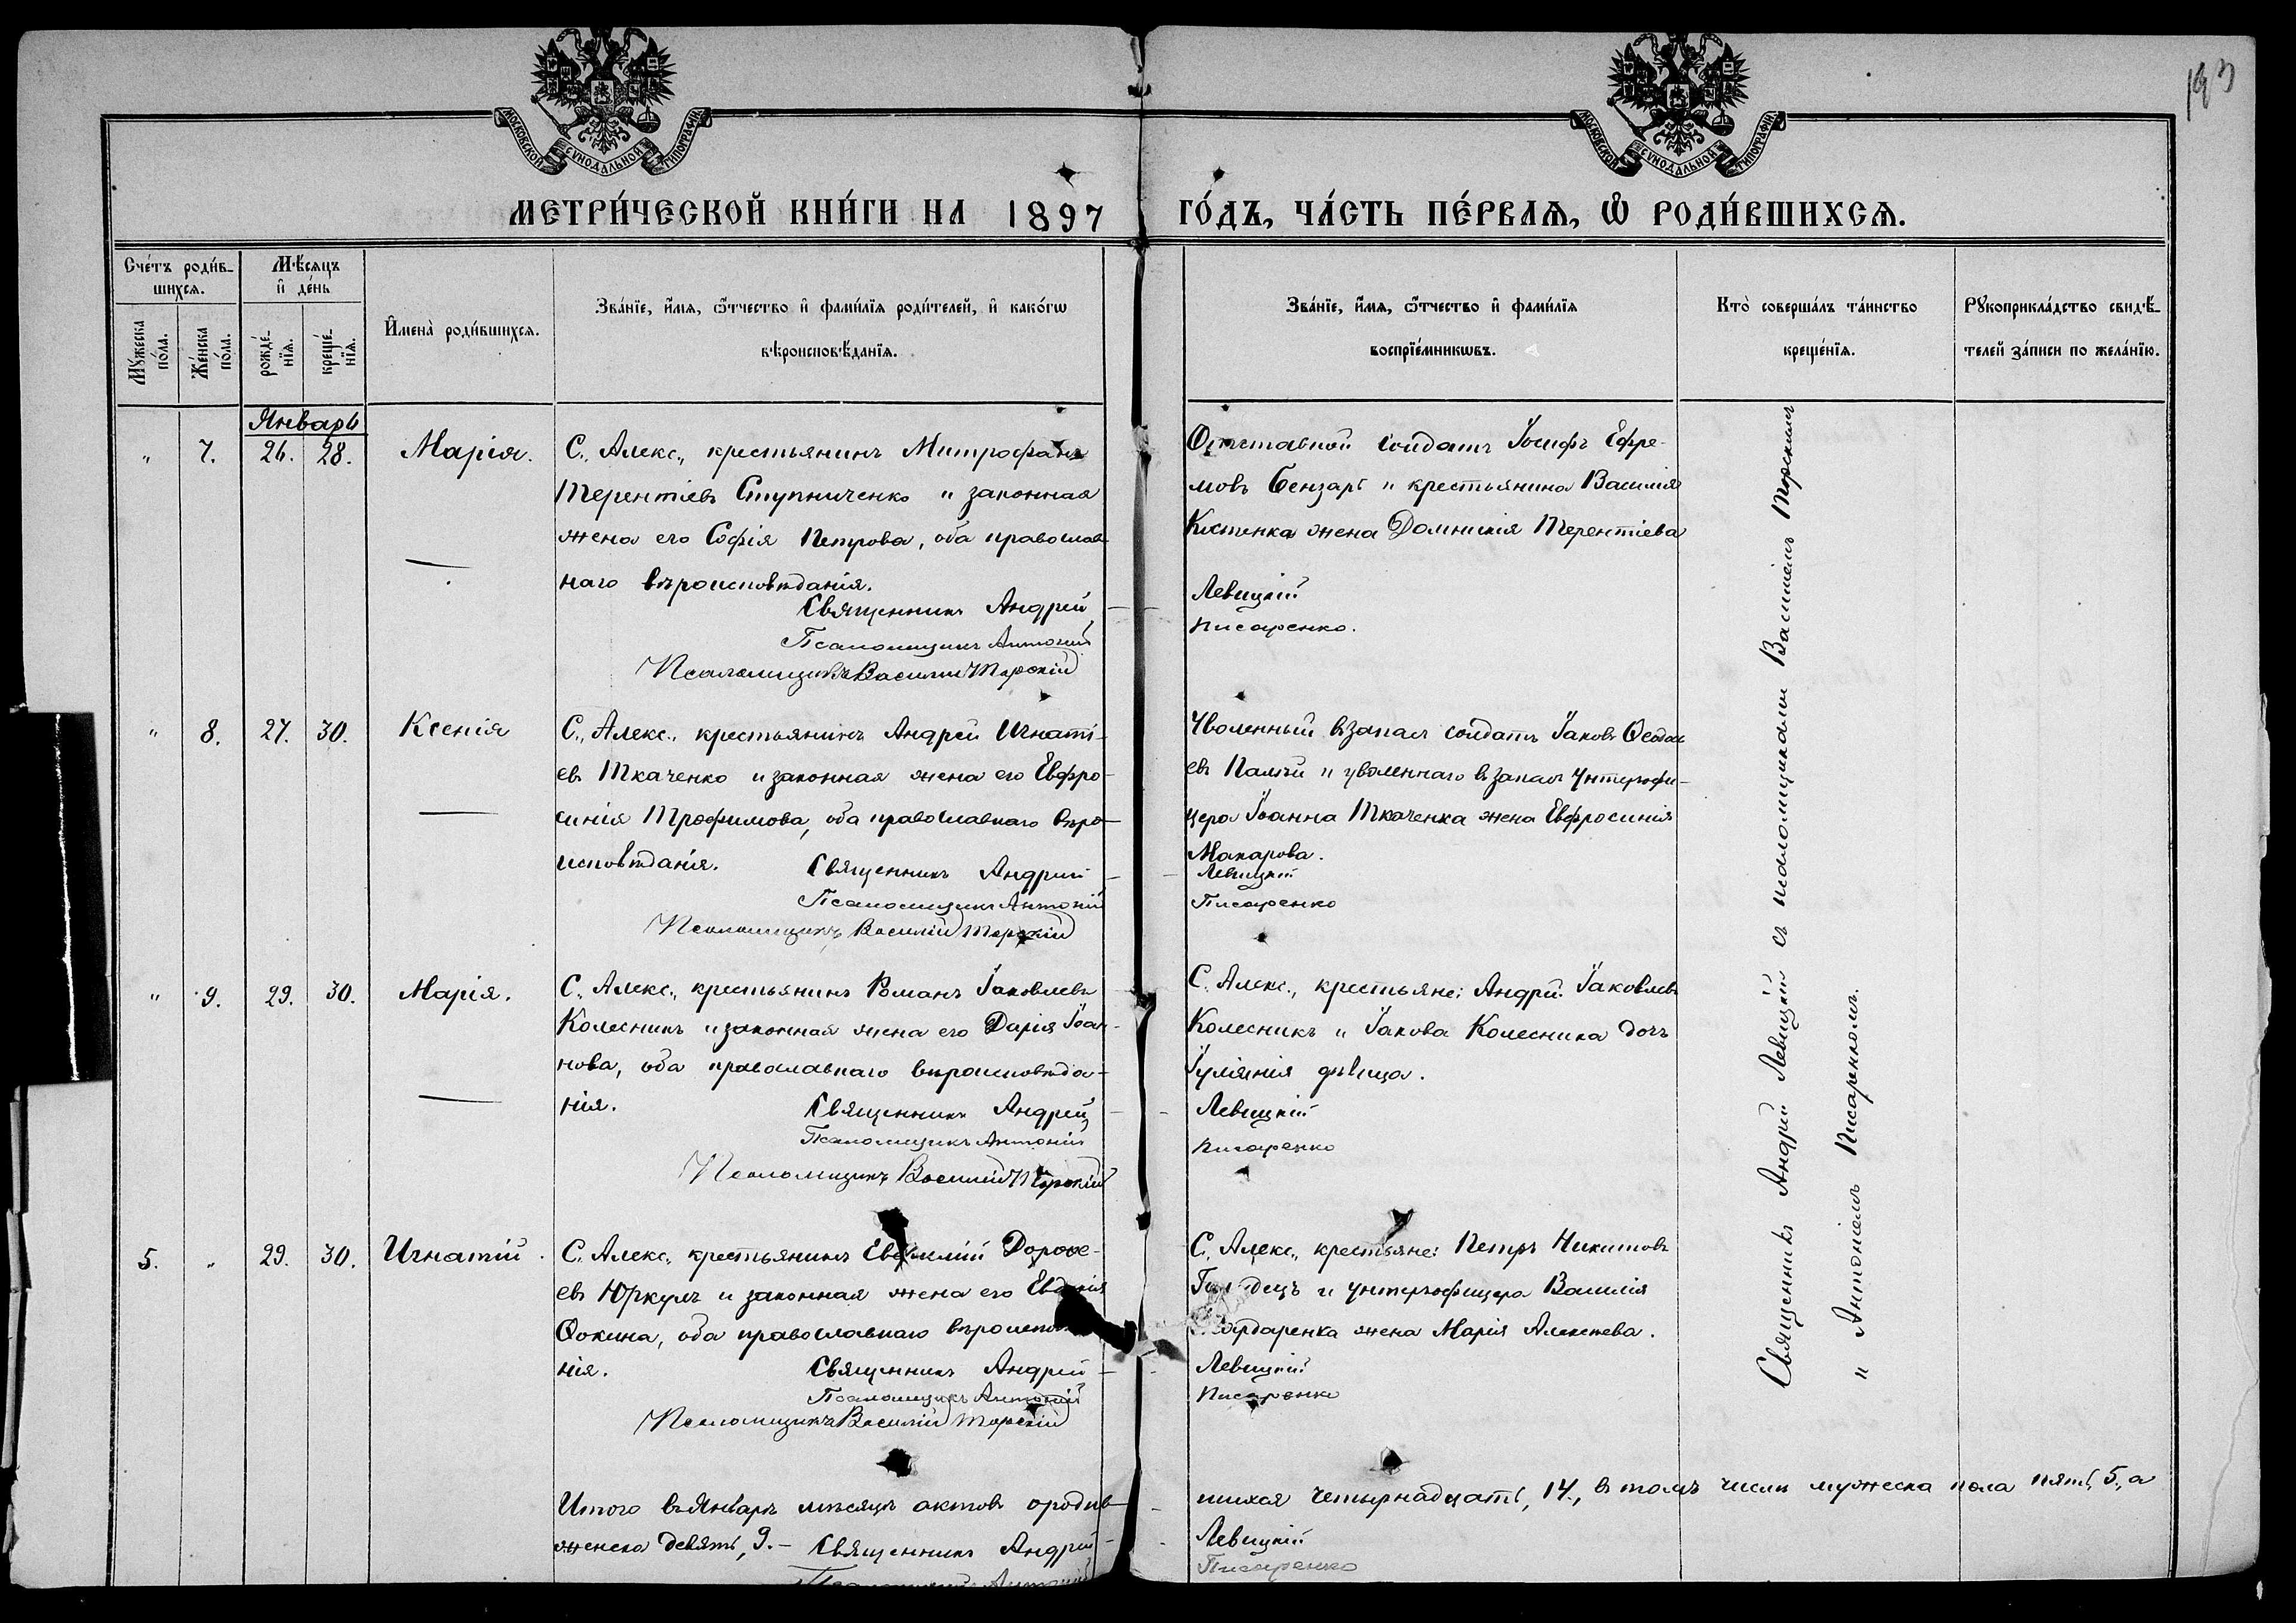 193
МОСКОВСКОЙ СѴНОДАЛЬНОЙ ТИПОГРАФІИ
МОСКОВСКОЙ СѴНОДАЛЬНОЙ ТИПОГРАФІИ
МЕТРИ́ЧЕСКОЙ КНИ́ГИ НА 1897 ГО́ДЪ, ЧА́СТЬ ПЕ́РВАѦ, Ѡ РОДИ́ВШИХСѦ.
Сче́тъ роди́в-
шихсѧ.
Мꙋ́жеска по́ла.
Же́нска по́ла.
Мѣ́сѧцъ и҆ де́нь
рожде́-
нїѧ.
креще́-
нїѧ.
И҆мена̀ роди́вшихсѧ.
Зва́нїе, и҆́мѧ, ѻ҆́тчество и҆ фами́лїѧ роди́телей, и҆ како́гѡ
вѣроисповѣ́данїѧ.
Зва́нїе, и҆́мѧ, ѻ҆́тчество и҆ фами́лїѧ
воспрїе́мникѡвъ.
Кто̀ соверша́лъ та́инство
креще́нїѧ.
Рꙋкоприкла́дство свидѣ́-
телей за́писи по жела́нїю.
Январь
" 7. 26. 28. Марія.
С. Алекс., крестьянинъ Митрофанъ
Терентіевъ Ступниченко и законная
жена его Софія Петрова, оба православ-
наго вѣроисповѣданія.
Священникъ Андрей
Псаломщикъ Антоній
Псаломщикъ Василій Торскій
Отставной солдатъ Іосифъ Ефре-
мовъ Бензарь и крестьянина Василія
Костенка жена Домникія Терентіева
Левицкій
Писаренко.
" 8. 27. 30. Ксенія
С. Алекс., крестьянинъ Андрей Игнаті-
евъ Ткаченко и законная жена его Евфро-
синія Трофимова, оба православнаго вѣро-
исповѣданія.
Священникъ Андрей
Псаломщикъ Антоній
Псаломщикъ Василій Торскій
Уволенный въ запасъ солдатъ Іаковъ
евъ Палій и уволеннаго въ запасъ унтерофи-
цера Іоанна Ткаченка жена Евфросинія
Макарова.
Левицкій
Писаренко
" 9. 29. 30. Марія.
С. Алекс., крестьянинъ Романъ Іаковлевъ
Колесникъ и законная жена его Дарія Іоан-
нова, оба православнаго вѣроисповѣда-
нія.
Священникъ Андрей
Псаломщикъ Антоній
Псаломщикъ Василій Торскій
С. Алекс., крестьяне: Андрей Іаковлевъ
Колесникъ и Іакова Колесника дочь
Іуліанія дѣвица.
Левицкій
Писаренко
5. " 29. 30. Игнатій.
С. Алекс., крестьянинъ Дороѳе-
евъ Юркулъ и законная жена его
Ѳокина, оба православнаго
нія.
Священникъ Андрей
Псаломщикъ Антоній
Псаломщикъ Василій Торскій
С. Алекс., крестьяне: Петръ Никитовъ
и унтерофицера Василія
жена Марія Алексѣева.
Левицкій
Писаренко
Священникъ Андрей Левицкій съ псаломщиками Василіемъ Торскимъ
" Антоніемъ Писаренкомъ.
Итого въ Январѣ мѣсяцѣ актовъ о родив-
шихся четырнадцать, 14., в томъ числѣ мужеска пола пять, 5., а
женска девять, 9. – Священникъ Андрей
Левицкій
Псаломщикъ Антоній
Писаренко